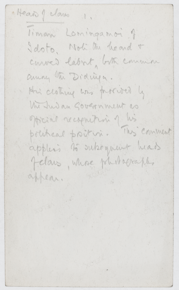 Heads of clans
Timoni Lomingamoi of
Idoto. Note the beard &
curved labret, both common
among the Dodinga.
His clothing was provided by
the Sudan Government as
special recognition of his
political position. This comment
applies to subsequent heads
of clans, whose photographs
appear.